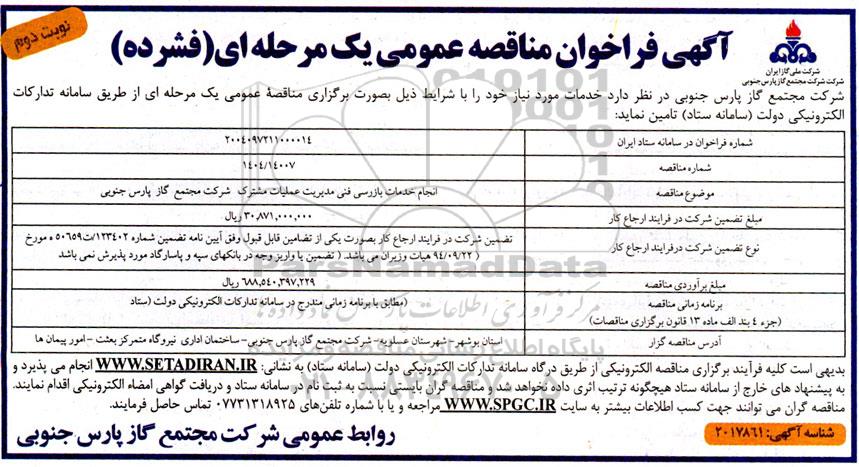 نوبت دوم
آگهی فراخوان مناقصه عمومی یک مرحله ای (فشرده)
شرکت ملی گاز ایران
شرکت مجتمع گاز پارس جنوبی
شرکت مجتمع گاز پارس جنوبی در نظر دارد خدمات مورد نیاز خود را با شرایط ذیل بصورت برگزاری مناقصهٔ عمومی یک مرحله ای از طریق سامانه تدارکات
الکترونیکی دولت (سامانه ستاد) تامین نماید:
شماره فراخوان در سامانه ستاد ایران ۲۰۰۴۰۹۷۲۱۱۰۰۰۰۱۴
شماره مناقصه ۱۴۰۴/۱۴۰۰۷
موضوع مناقصه انجام خدمات بازرسی فنی مدیریت عملیات مشترک شرکت مجتمع گاز پارس جنوبی
مبلغ تضمین شرکت در فرایند ارجاع کار ۳۰,۸۷۱,۰۰۰,۰۰۰ ریال
نوع تضمین شرکت درفرایند ارجاع کار تضمین شرکت در فرایند ارجاع کار بصورت یکی از تضامین قابل قبول وفق آیین نامه تضمین شماره ۱۲۳۴۰۲/ت۵۰۶۵۹ ه مورخ
۹۴/۰۹/۲۲ هیات وزیران می باشد. ( تضمین یا واریز وجه در بانکهای سپه و پاسارگاد مورد پذیرش نمی باشد )
مبلغ برآوردی مناقصه ۶۸۸,۵۴۰,۳۹۷,۲۲۹ ریال
برنامه زمانی مناقصه (مطابق با برنامه زمانی مندرج در سامانه تدارکات الکترونیکی دولت (ستاد)
(جزء ۴ بند الف ماده ۱۳ قانون برگزاری مناقصات)
آدرس مناقصه گزار استان بوشهر- شهرستان عسلویه- شرکت مجتمع گاز پارس جنوبی- ساختمان اداری نیروگاه متمرکز بعثت - امور پیمان ها
بدیهی است کلیه فرآیند برگزاری مناقصه الکترونیکی از طریق درگاه سامانه تدارکات الکترونیکی دولت (سامانه ستاد) به نشانی: WWW.SETADIRAN.IR انجام می پذیرد و
به پیشنهاد های خارج از سامانه ستاد هیچگونه ترتیب اثری داده نخواهد شد و مناقصه گران بایستی نسبت به ثبت نام در سامانه ستاد و دریافت گواهی امضاء الکترونیکی اقدام نمایند.
مناقصه گران می توانند جهت کسب اطلاعات بیشتر به سایت WWW.SPGC.IR مراجعه و یا با شماره تلفن‌های ۰۷۷۳۱۳۱۸۹۲۵ تماس حاصل فرمایند.
شناسه آگهی: ۲۰۱۷۸۶۱
روابط عمومی شرکت مجتمع گاز پارس جنوبی
ParsNamadData
مرکز فرآوری اطلاعات پارس نماد داده ها